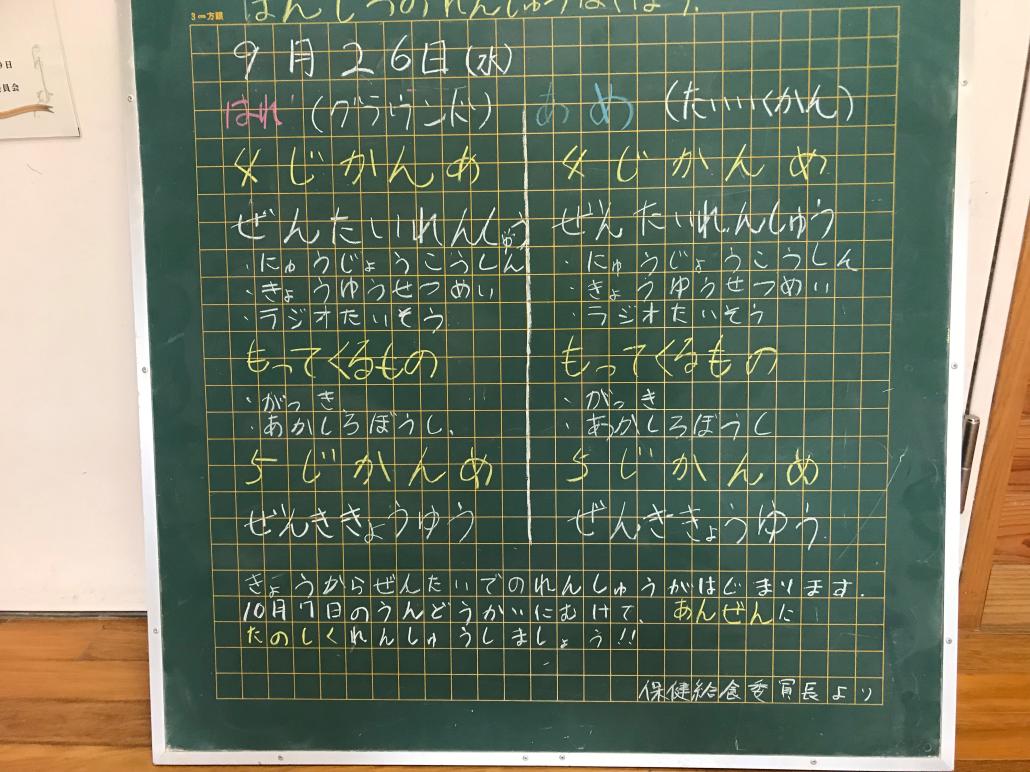 3cm方眼
9月26日(水)
はれ (グラウンド)
4じかんめ
ぜんたいれんしゅう
・にゅうじょうこうしん
・きょうゆうせつめい
・ラジオたいそう
もってくるもの
・がっき
・あかしろぼうし.
5じかんめ
ぜんききょうゆう
あめ (たいいくかん)
4じかんめ
ぜんたいれんしゅう
・にゅうじょうこうしん
・きょうゆうせつめい
・ラジオたいそう
もってくるもの
・がっき
・あかしろぼうし
5じかんめ
ぜんききょうゆう
きょうからぜんたいでのれんしゅうがはじまります.
10月7日のうんどうかいにむけて、あんぜんに
たのしくれんしゅうしましょう!!
保健給食委員長より